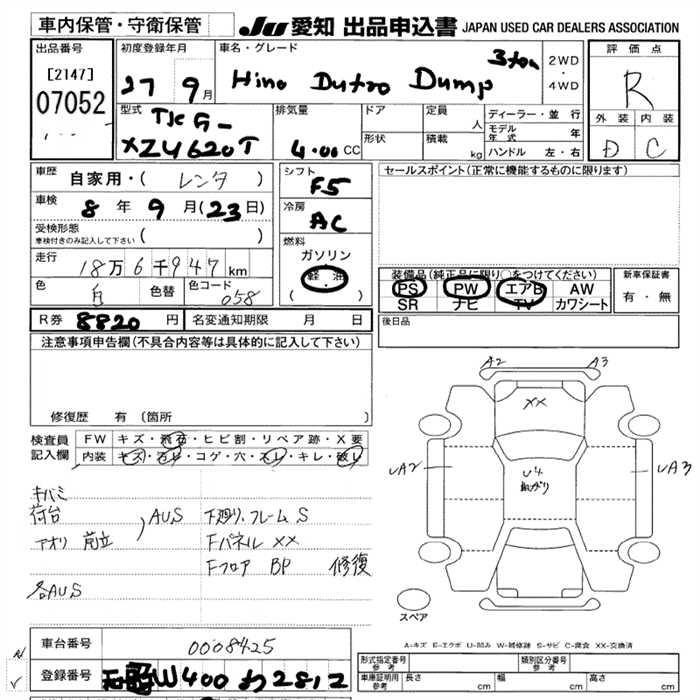 車内保管・守衛保管
JU 愛知 出品申込書 JAPAN USED CAR DEALERS ASSOCIATION
出品番号
[2147]
07052
初度登録年月
27 9月
車名・グレード
Hino Dutro Dump 3ton
2WD
・
4WD
評価点
R
外装 内装
D C
型式
TKG-
XZU620T
排気量
4.00 CC
ドア
形状
定員
人
積載
kg
ディーラー・並行
モデル年式 年
ハンドル 左・右
車歴
自家用・( レンタ )
車検
8年 9月(23日)
受検形態
車検付きのみ記入して下さい ( )
走行
18万6千947km
色
白
色替
色コード
058
シフト
F5
冷房
AC
燃料
ガソリン
軽油
( )
セールスポイント(正常に機能するものに限ります)
装備品(純正品に限り○をつけてください)
PS PW エアB AW
SR ナビ TV カワシート
新車保証書
有・無
R券 8820円
名変通知期限 月 日
後日品
注意事項申告欄(不具合内容等は具体的に記入して下さい)
修復歴 有(箇所 )
検査員
記入欄
FW キズ・飛石・ヒビ割・リペア跡・X要
内装 キズ・汚レ・コゲ・穴・スレ・キレ・破レ
キバミ
荷台
アオリ 鳥立
AUS
各AUS
下廻り.フレーム S
Fパネル XX
Fフロア BP 修復
A2 A3
XX
UA2
U4
UA3
スペア
A-キズ E-エクボ U-凹み W-補修跡 S-サビ C-腐食 XX-交換済
車台番号
0008425
登録番号
W400 わ2812
形式指定番号
参考
類別区分番号
参考
車庫証明用
参考
長さ cm
幅 cm
高さ cm